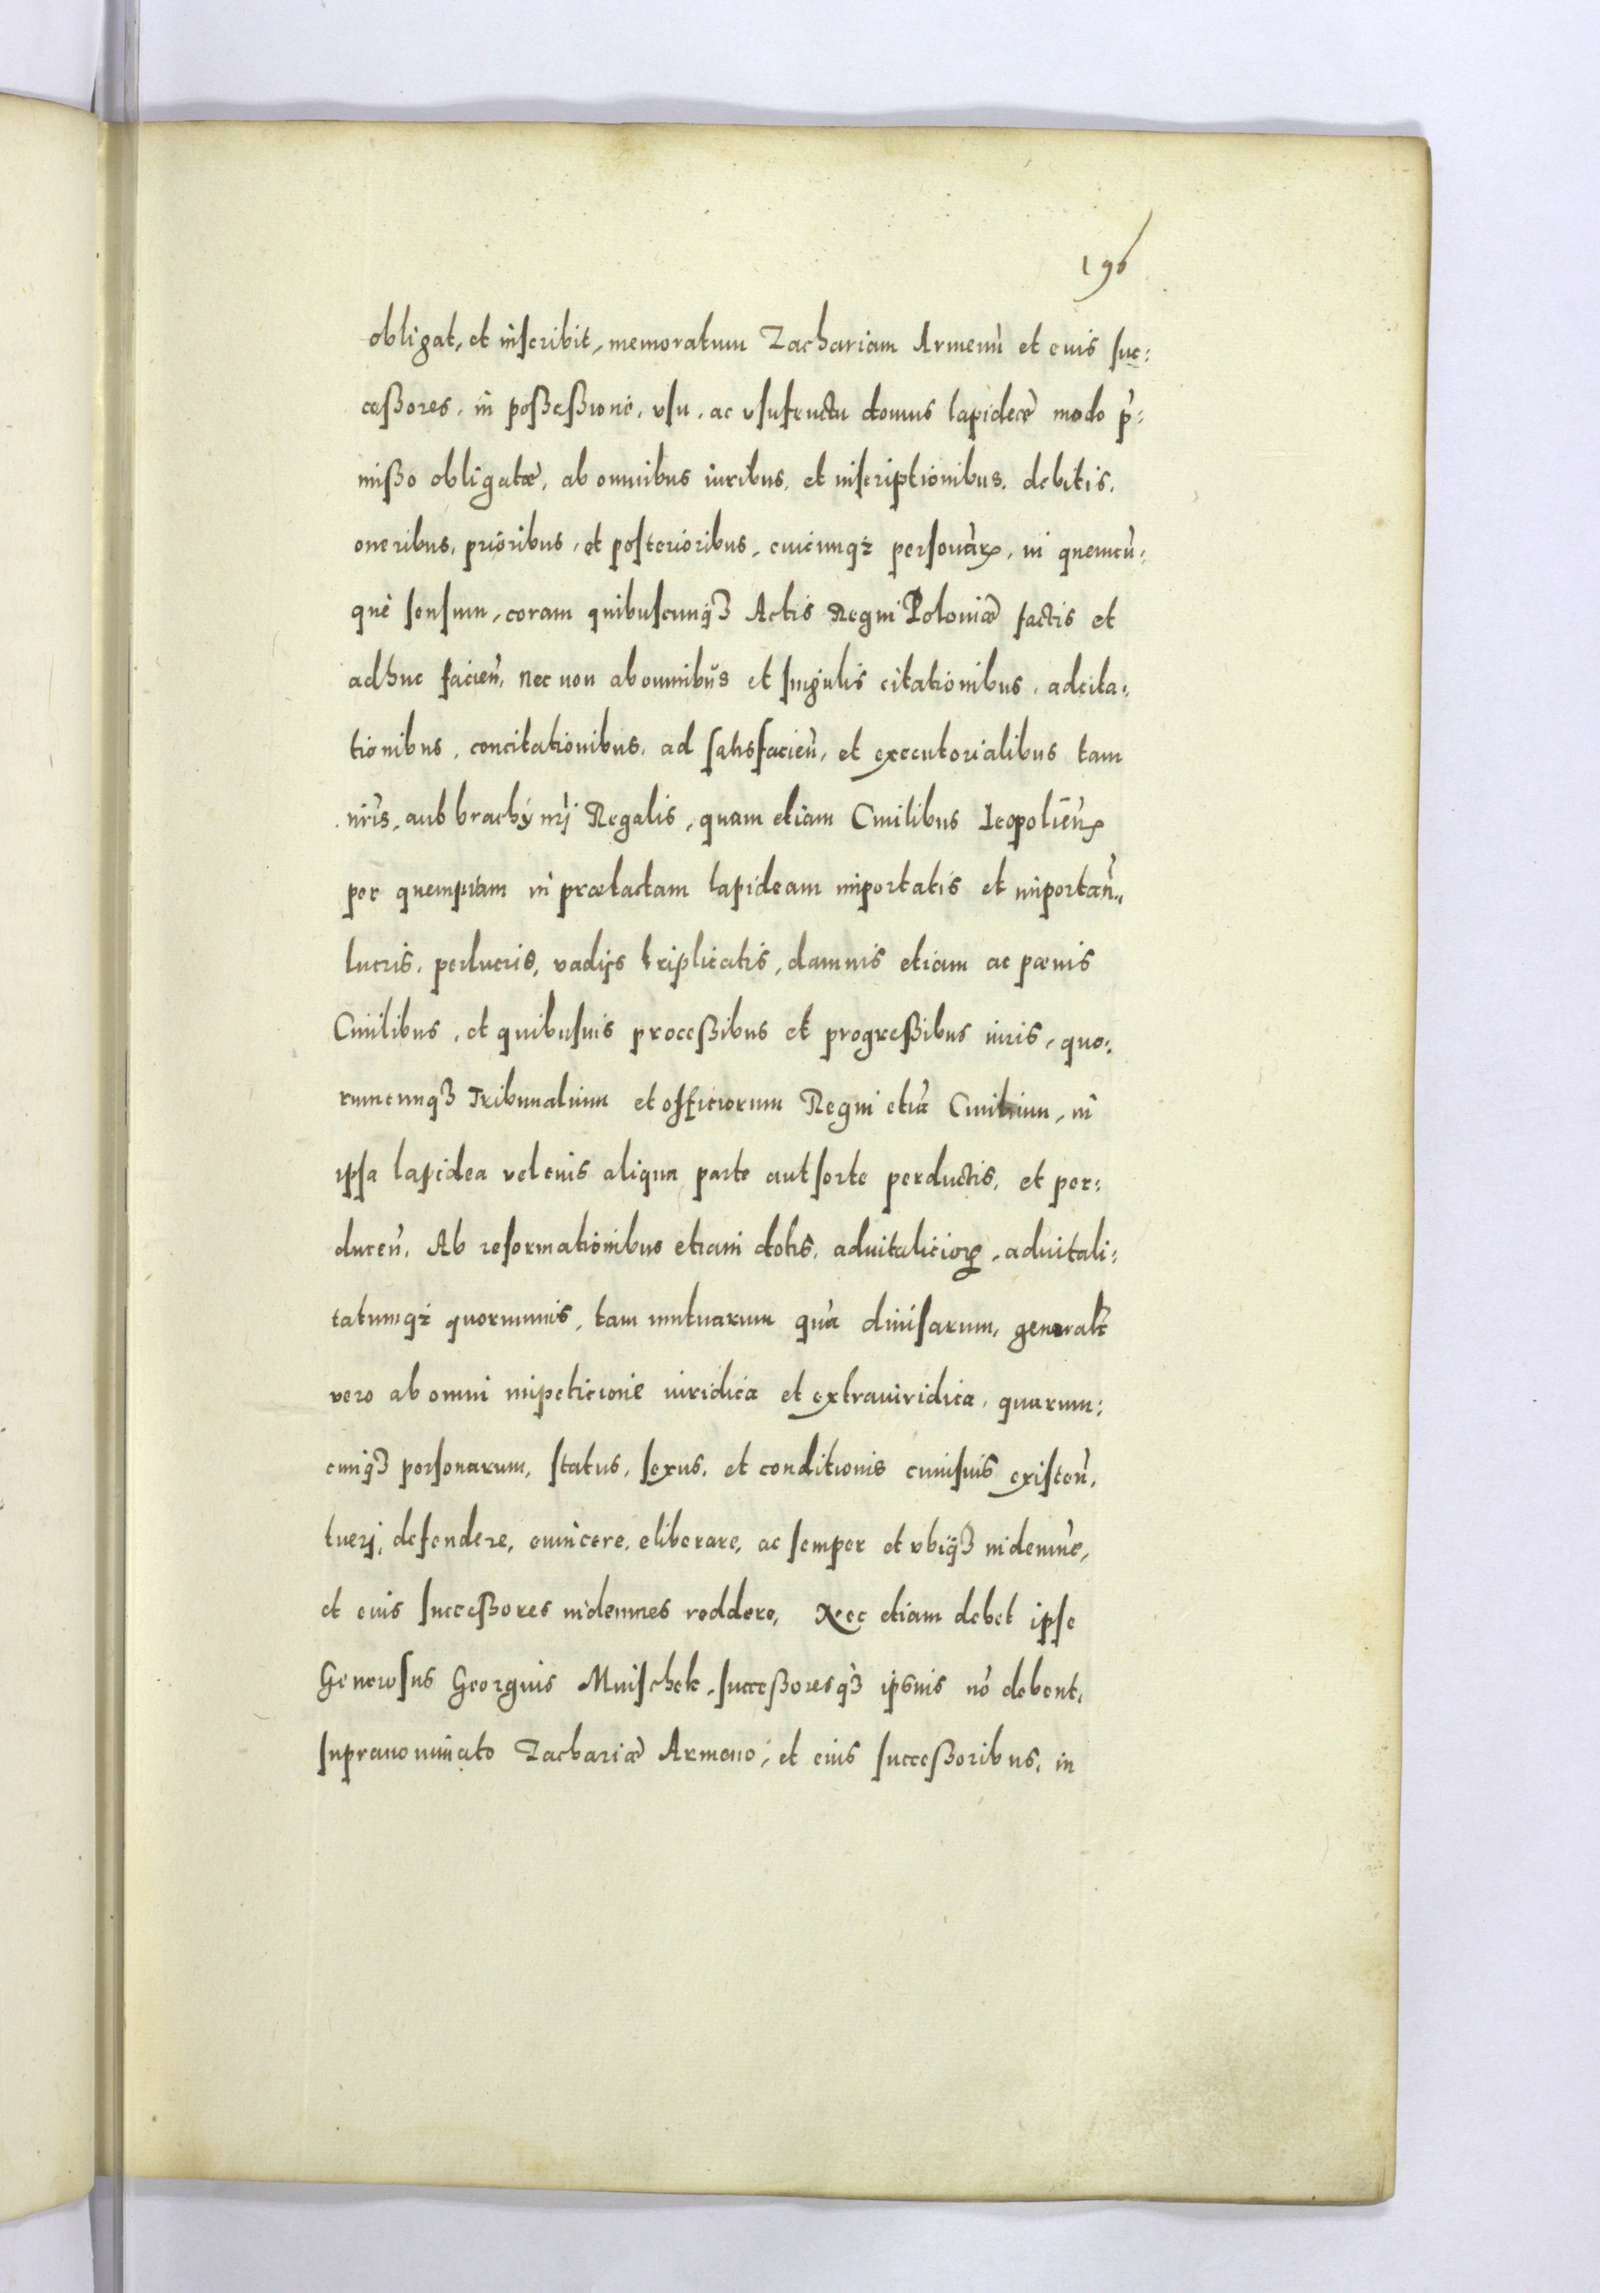 196
obligat, et inscribit, memoratum Zachariam Armenũ et eius suc:
ceßores, in poßeßione, vsu, ac vsufructu domus lapideæ modo p̃:
mißo obligatæ, ab omnibus iuribus, et inscriptionibus, debitis,
oneribus, prioribus, et posterioribus, cuicunqz personarꝝ, in quemcũ:
que sensum, coram quibuscunqꝫ Actis Regni Poloniæ factis et
adhuc facieñ, nec non ab omnibus et singulis citationibus, adcita:
tionibus, concitationibus, ad satisfacieñ, et executorialibus tam
nr̃is, aut brachÿ nr̃j Regalis, quam etiam Ciuilibus Leopolieñ
per quempiam in prætactam lapideam importatis et importañ,
lucris, perlucris, vadijs triplicatis, damnis etiam ac pœnis
Ciuilibus, et quibusuis proceßibus et progreßibus iuris, quo:
rumcunqꝫ Tribunalium et officiorum Regni etiã Ciuilium, in
ipsa lapidea vel eius aliqua parte aut sorte perductis, et per:
duceñ, Ab reformationibus etiam dotis, aduitaliciorꝝ, aduitali:
tatumqz quorumuis, tam mutuarum quã diuisarum, generalr̃
vero ab omni impeticione iuridica et extraiuridica, quarum:
cunqꝫ personarum, status, sexus, et conditionis cuiusuis existeñ,
tuerj, defendere, euincere, eliberare, ac semper et vbiqꝫ indemnẽ,
et eius succeßores indemnes reddere, Nec etiam debet ipse
Generosus Georgius Mnischek, succeßoresqꝫ ipsius nõ debent,
supranominato Zachariæ Armeno, et eius succeßoribus, in